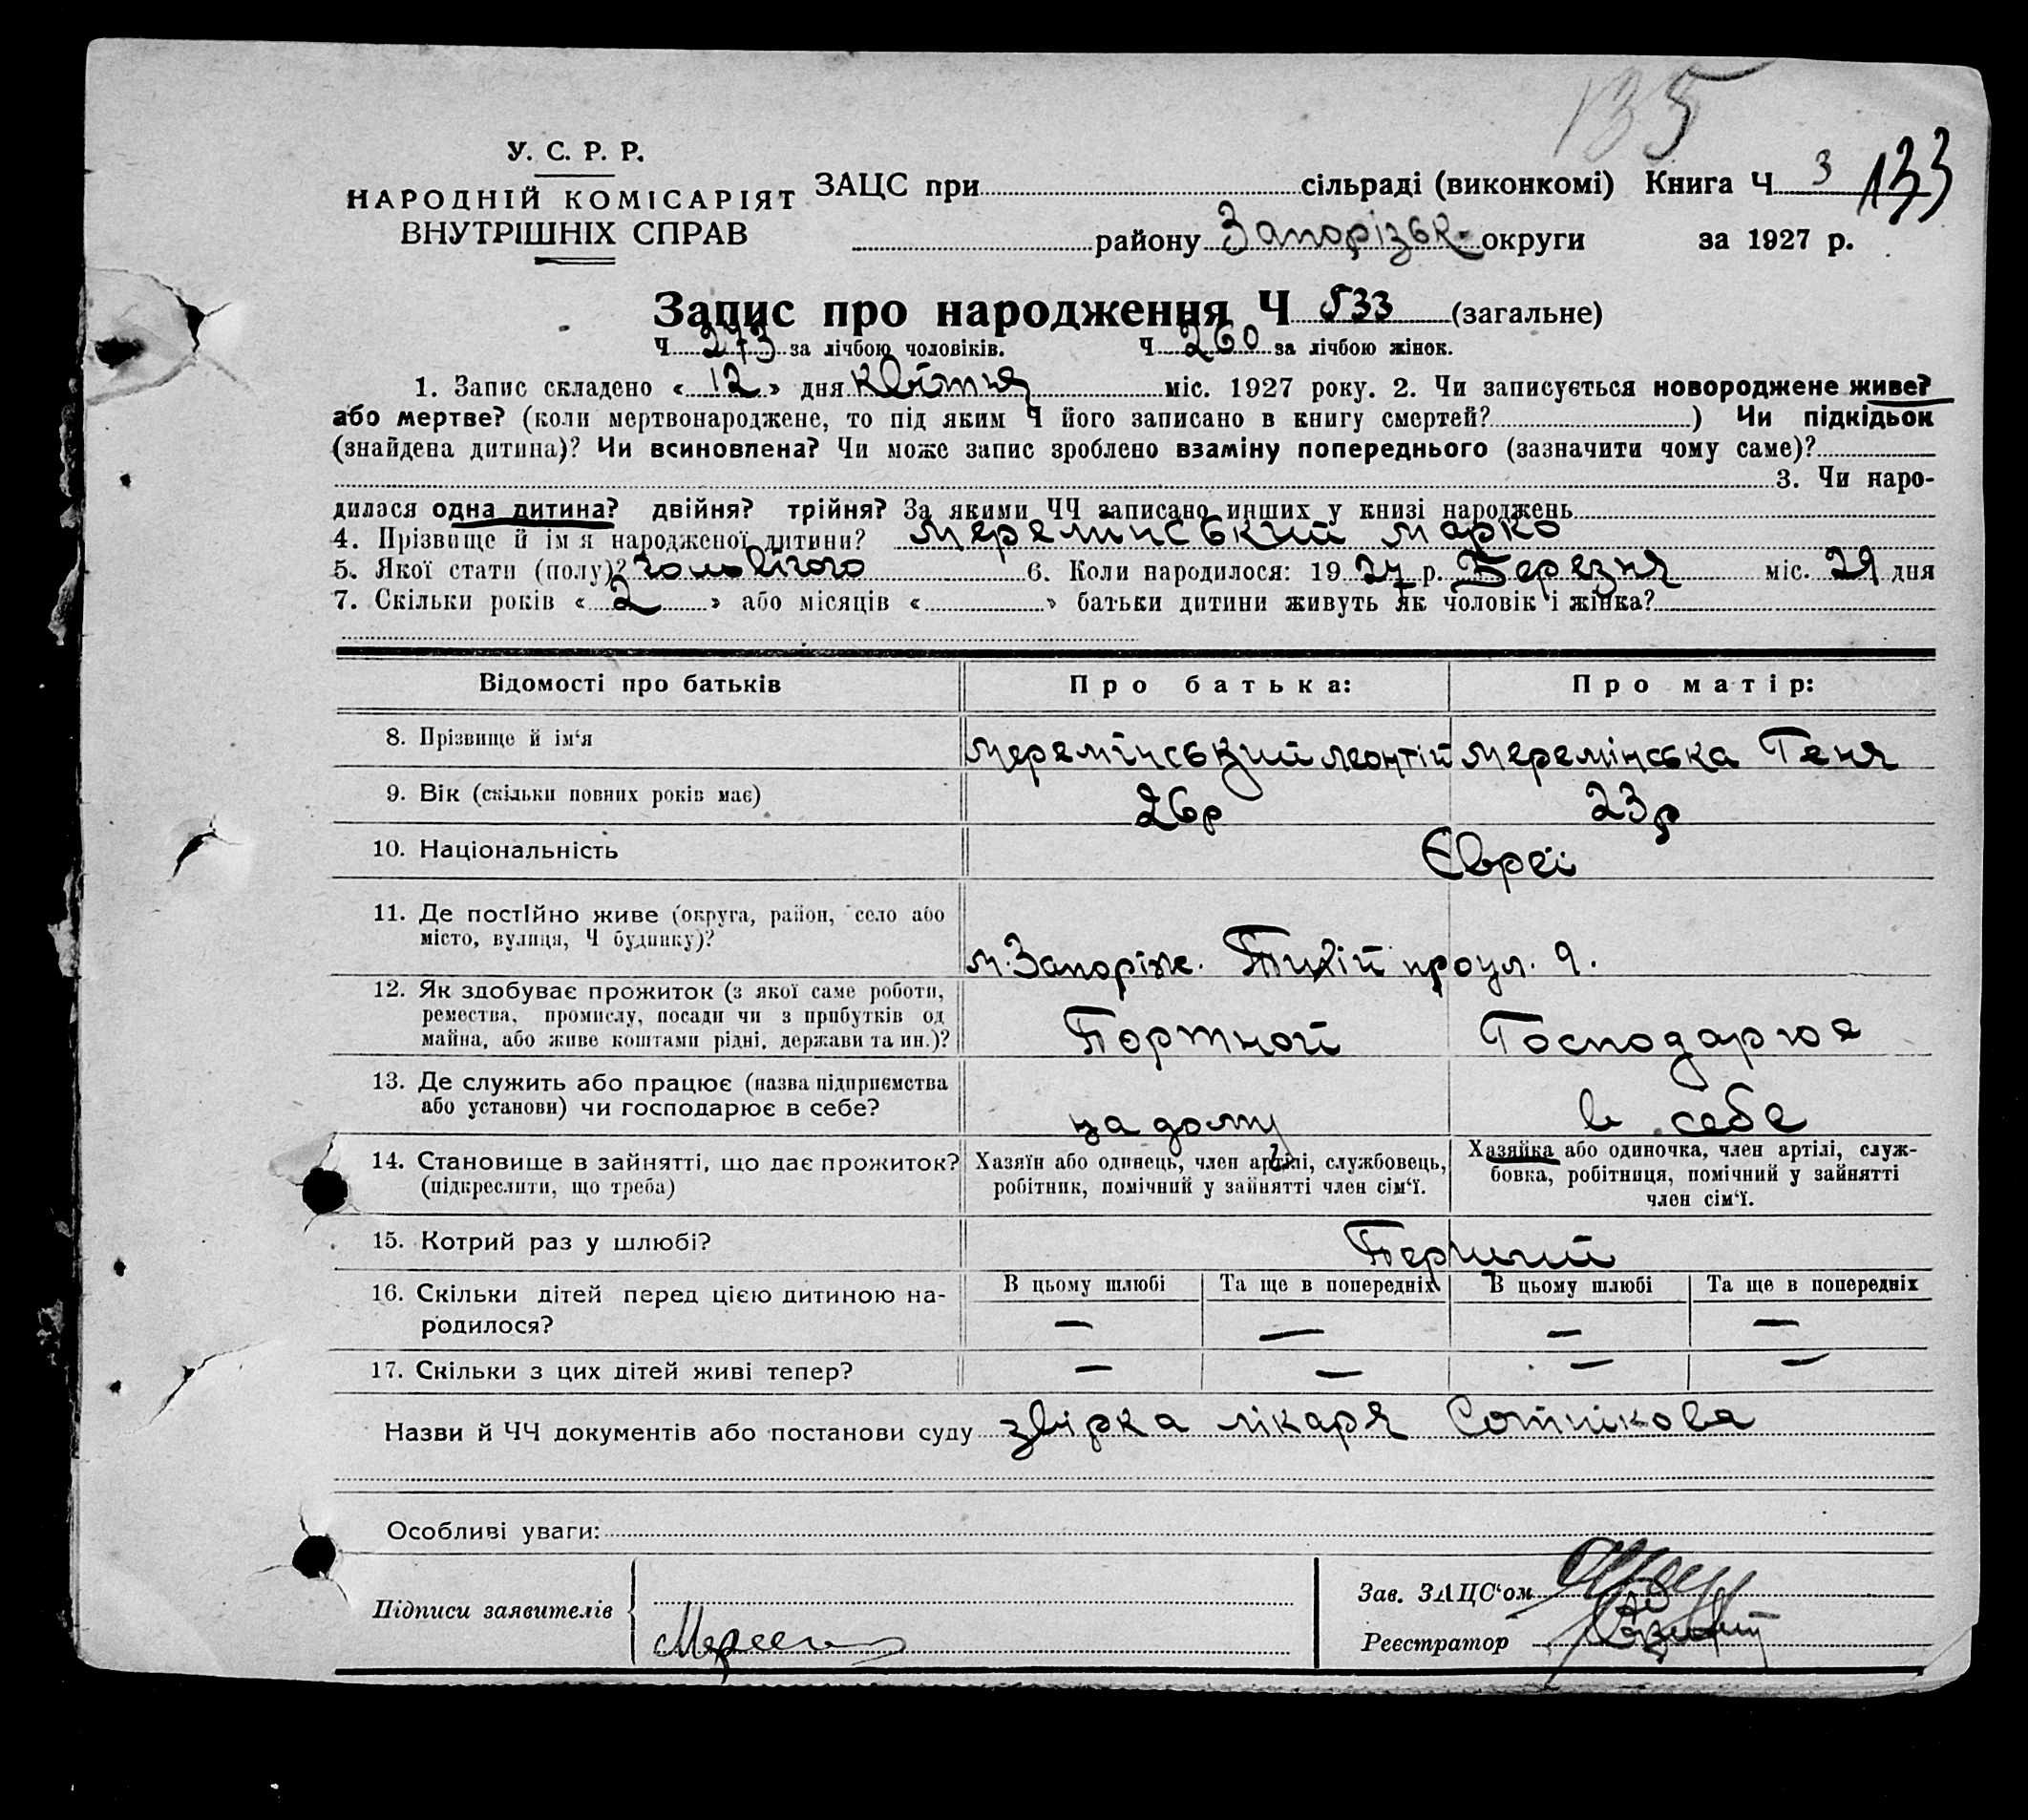 135
У. С. Р. Р.
НАРОДНІЙ КОМІСАРІЯТ
ВНУТРІШНІХ СПРАВ
ЗАЦС при сільраді (виконкомі) Книга Ч 3 133
району Запорізьк. округи за 1927 р.
Запис про народження Ч 533 (загальне)
Ч 273 за лічбою чоловіків. Ч 260 за лічбою жінок.
1. Запис складено « 12 » дня квітня міс. 1927 року. 2. Чи записується новороджене живе?
або мертве? (коли мертвонароджене, то під яким Ч його записано в книгу смертей? ) Чи підкідьок
(знайдена дитина)? Чи всиновлена? Чи може запис зроблено взаміну попереднього (зазначити чому саме)?
3. Чи наро-
дилася одна дитина? двійня? трійня? За якими ЧЧ записано инших у книзі народжень
4. Прізвище й ім'я народженої дитини? Меремінський Марко
5. Якої стати (полу)? чоловічого 6. Коли народилося: 19 27 р. Березня міс. 29 дня
7. Скільки років « 2 » або місяців « » батьки дитини живуть як чоловік і жінка?
Відомості про батьків Про батька: Про матір:
8. Прізвище й ім‘я Меремінський Леонтій Меремінська Геня
9. Вік (скільки повних років має) 26р 23р
10. Національність Євреї
11. Де постійно живе (округа, район, село або
місто, вулиця, Ч будинку)? м. Запоріж. Тихій проул. 9.
12. Як здобуває прожиток (з якої саме роботи,
ремества, промислу, посади чи з прибутків од
майна, або живе коштами рідні, держави та ин.)? Портной Господарює
13. Де служить або працює (назва підприємства
або установи) чи господарює в себе? на дому в себе
14. Становище в зайнятті, що дає прожиток?
(підкреслити, що треба)
Хазяїн або одинець, член артілі, службовець,
робітник, помічний у зайнятті член сім‘ї.
Хазяйка або одиночка, член артілі, служ-
бовка, робітниця, помічний у зайнятті
член сім‘ї.
15. Котрий раз у шлюбі? Перший
16. Скільки дітей перед цією дитиною на-
родилося?
В цьому шлюбі Та ще в попередніх В цьому шлюбі Та ще в попередніх
— — — —
17. Скільки з цих дітей живі тепер? — — — —
Назви й ЧЧ документів або постанови суду звірка лікаря Сотнікова
Особливі уваги:
Підписи заявителів
Зав. ЗАЦС‘ом
Реєстратор